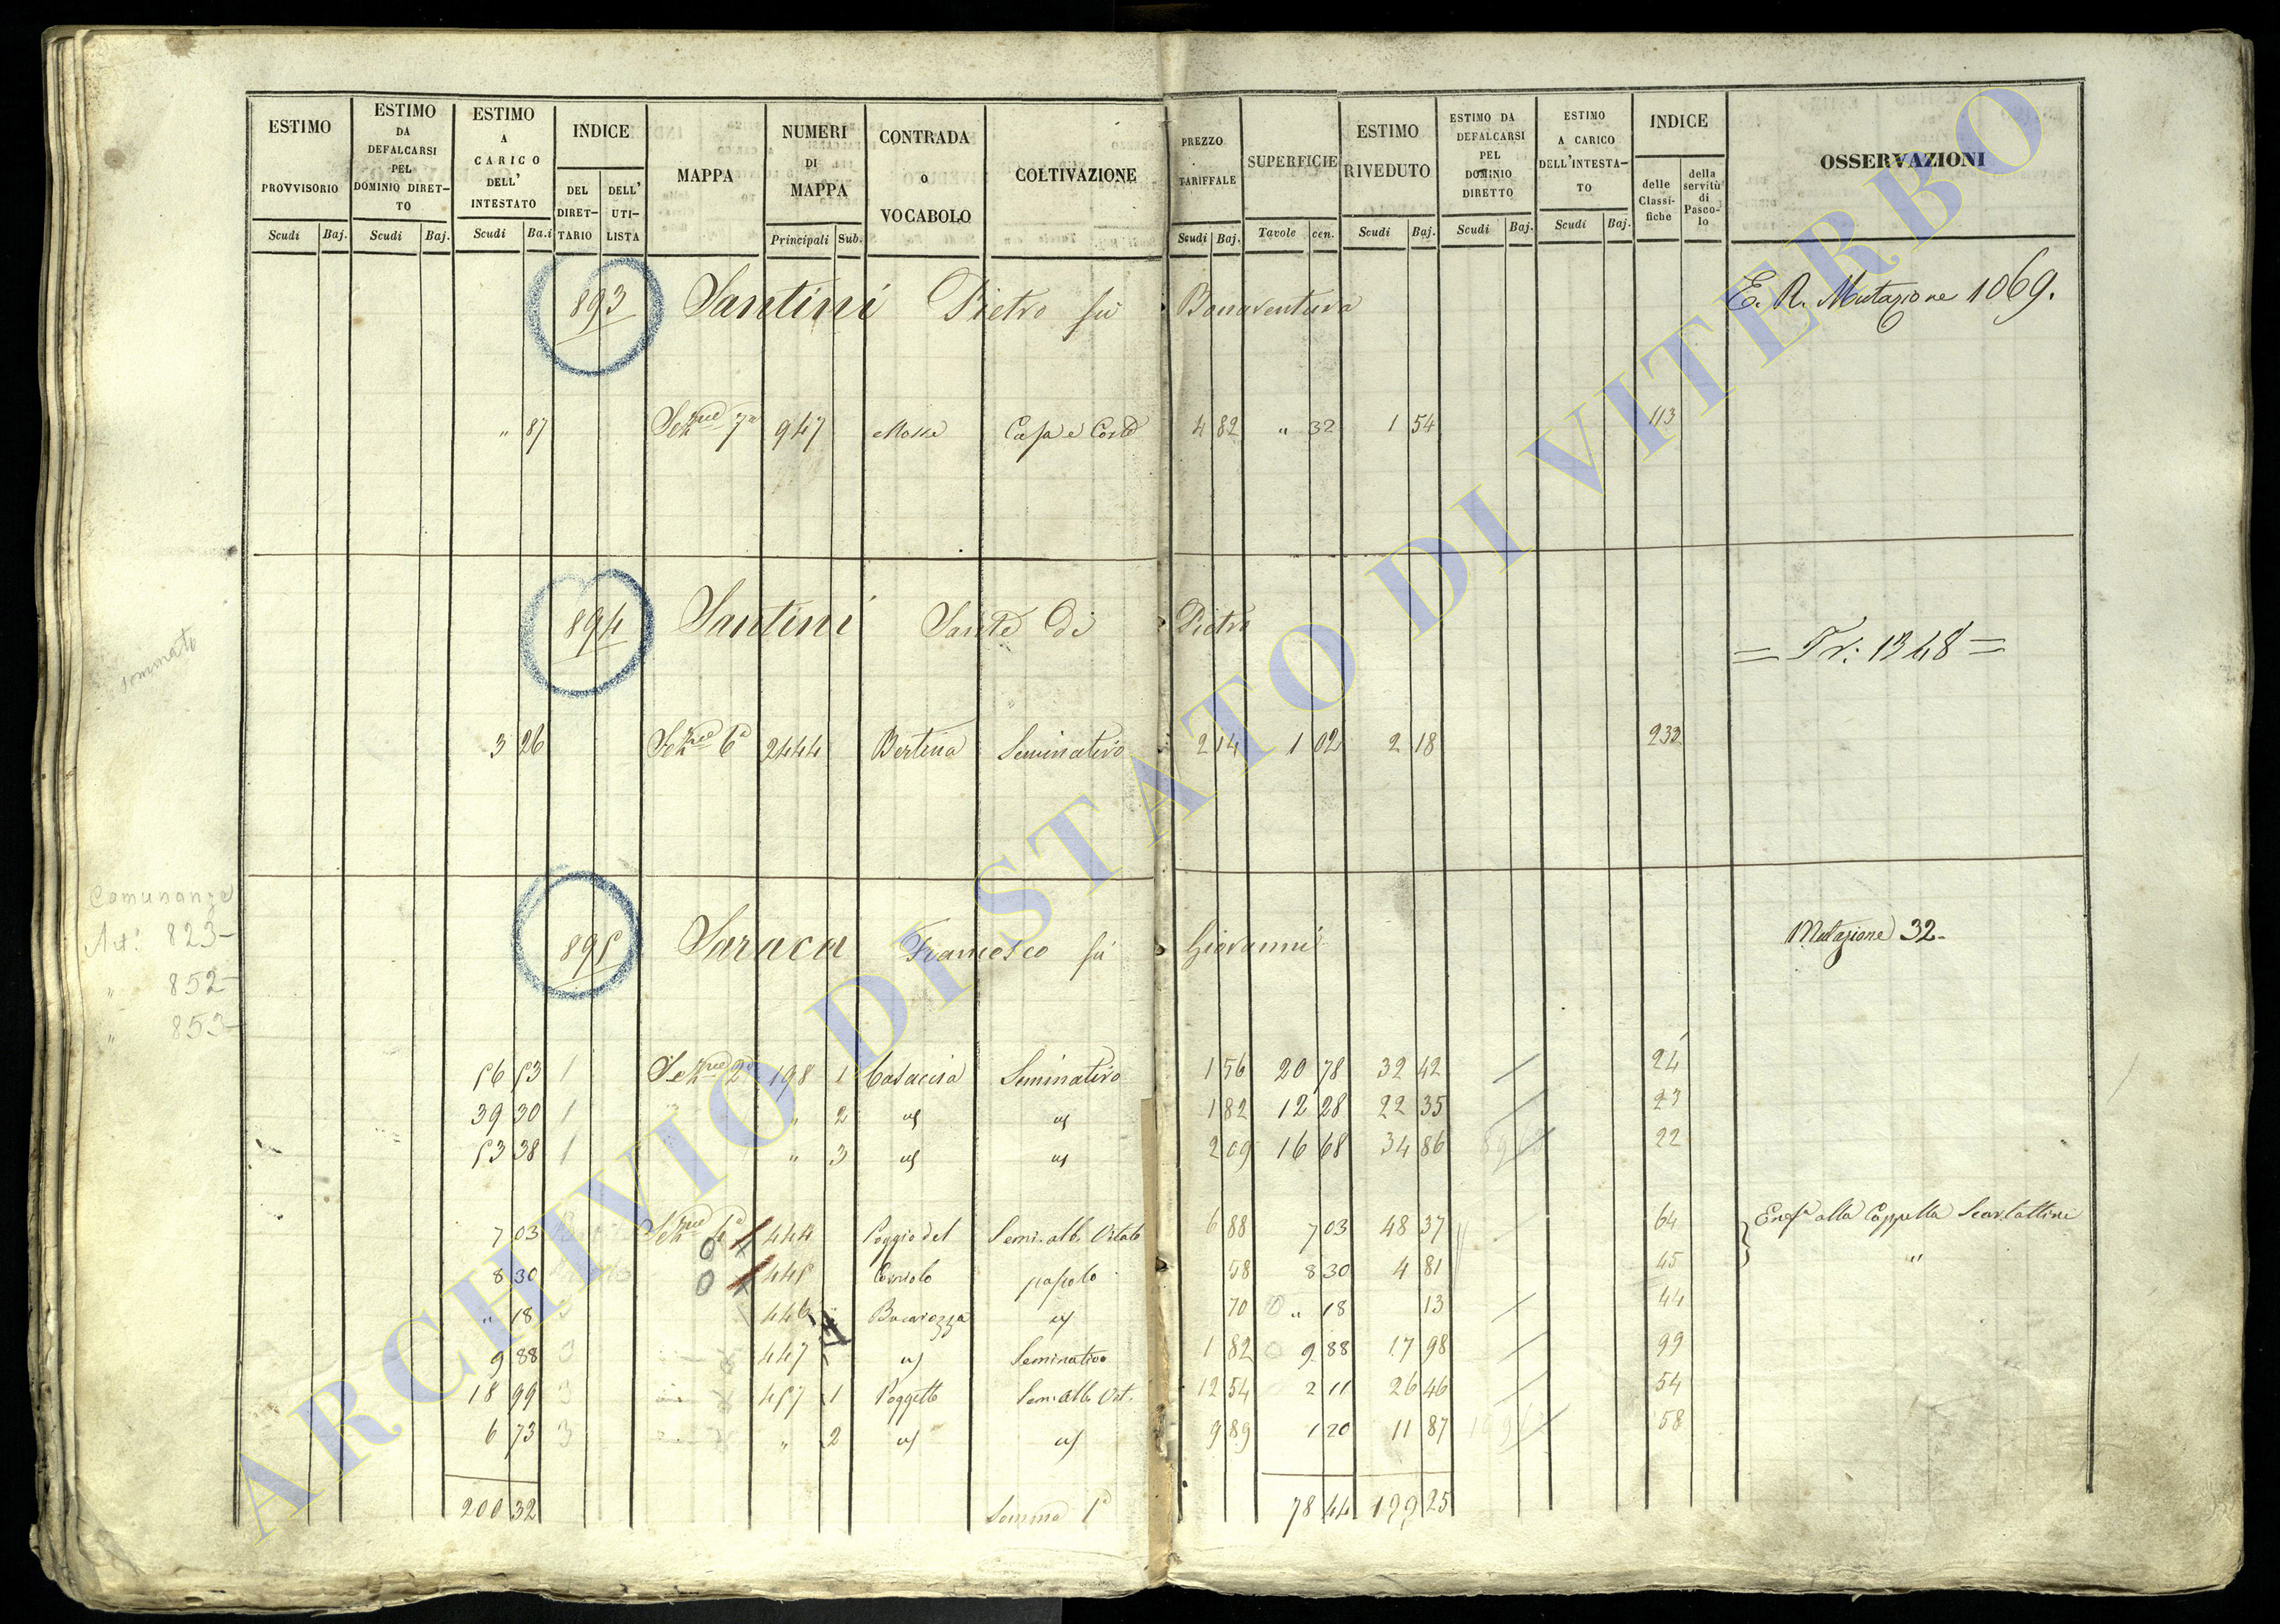 ESTIMO PROVVISORIO Scudi Baj.
ESTIMO DA DEFALCARSI PEL DOMINIO DIRET- TO Scudi Baj.
ESTIMO A CARICO DELL' INTESTATO Scudi Ba.i
INDICE DEL DIRET- TARIO DELL' UTI- LISTA
MAPPA
NUMERI DI MAPPA Principali Sub.
CONTRADA O VOCABOLO
COLTIVAZIONE
PREZZO TARIFFALE Scudi Baj.
SUPERFICIE Tavole cen.
ESTIMO RIVEDUTO Scudi Baj.
ESTIMO DA DEFALCARSI PEL DOMINIO DIRETTO Scudi Baj.
ESTIMO A CARICO DELL'INTESTA- TO Scudi Baj.
INDICE delle Classi- fiche della servitù di Pasco- lo
OSSERVAZIONI
893 Santini Pietro fù Bonaventura E. R. Mutazione 1069.
" 87 Sezne 7a 947 Casa e Corte 4 82 " 32 1 54 113
sommato
894 Santini Sante di Pietro = Tr: 1348 =
3 26 Sezne 6a 2444 Bertena Seminativo 2 14 1 02 2 18 232
Comunanze
Art: 823-
" 852-
" 853-
895 Saraca Francesco fù Giovanni Mutazione 32-
56 53 1 Sezne 2a 198 1 Casaccia Seminativo 1 56 20 78 32 42 24
39 30 1 " 2 id id 1 82 12 28 22 35 23
53 38 1 " 3 id id 2 09 16 68 34 86 22
7 03 Sezne 444 Poggio del Semi. alb. Vitato 6 88 7 03 48 37 64 Enfa alla Cappella Scarlattini
8 30 445 Corniolo pascolo 58 8 30 4 81 45 "
" 18 446 Bucarozza id 70 " 18 13 44
9 88 3 447 id Seminativo 1 82 9 88 17 98 99
18 99 3 457 1 Poggetto Sem. alb. Vit. 12 54 2 11 26 46 54
6 73 3 " 2 id id 9 89 1 20 11 87 58
200 32 Somma 1a 78 44 199 25
ARCHIVIO DI STATO DI VITERBO